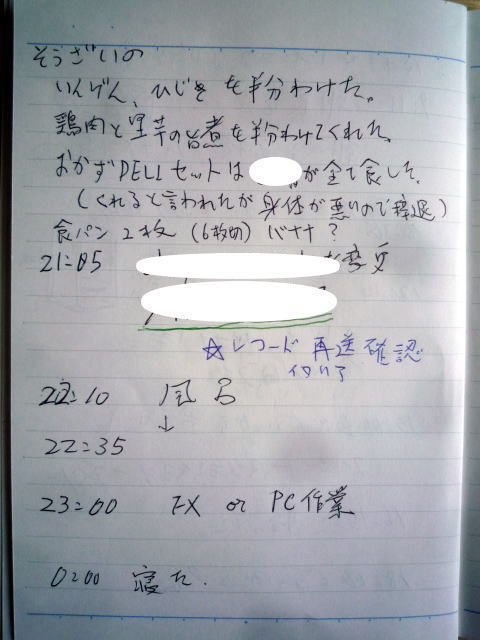 そうざいの
いんげん、ひじきを半分わけた。
鶏肉と里芋の旨煮を半分わけてくれた。
おかずDELIセットは が全て食した。
(くれると言われたが身体が悪いので辞退)
食パン2枚 (6枚切) バナナ?
21:05
☆レコード再送確認
22:10 風呂
↓
22:35
23:00 FX or PC作業
0:00 寝た.